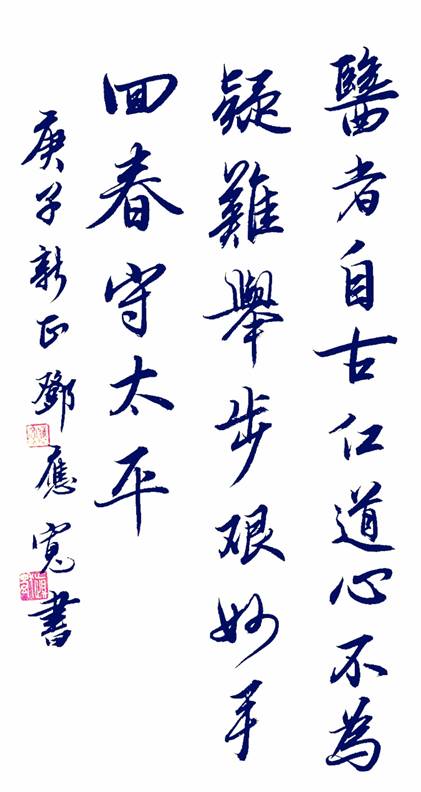 醫者自古仁道心不為
疑難舉步艰妙手
回春守太平
庚子新正鄧應寬書